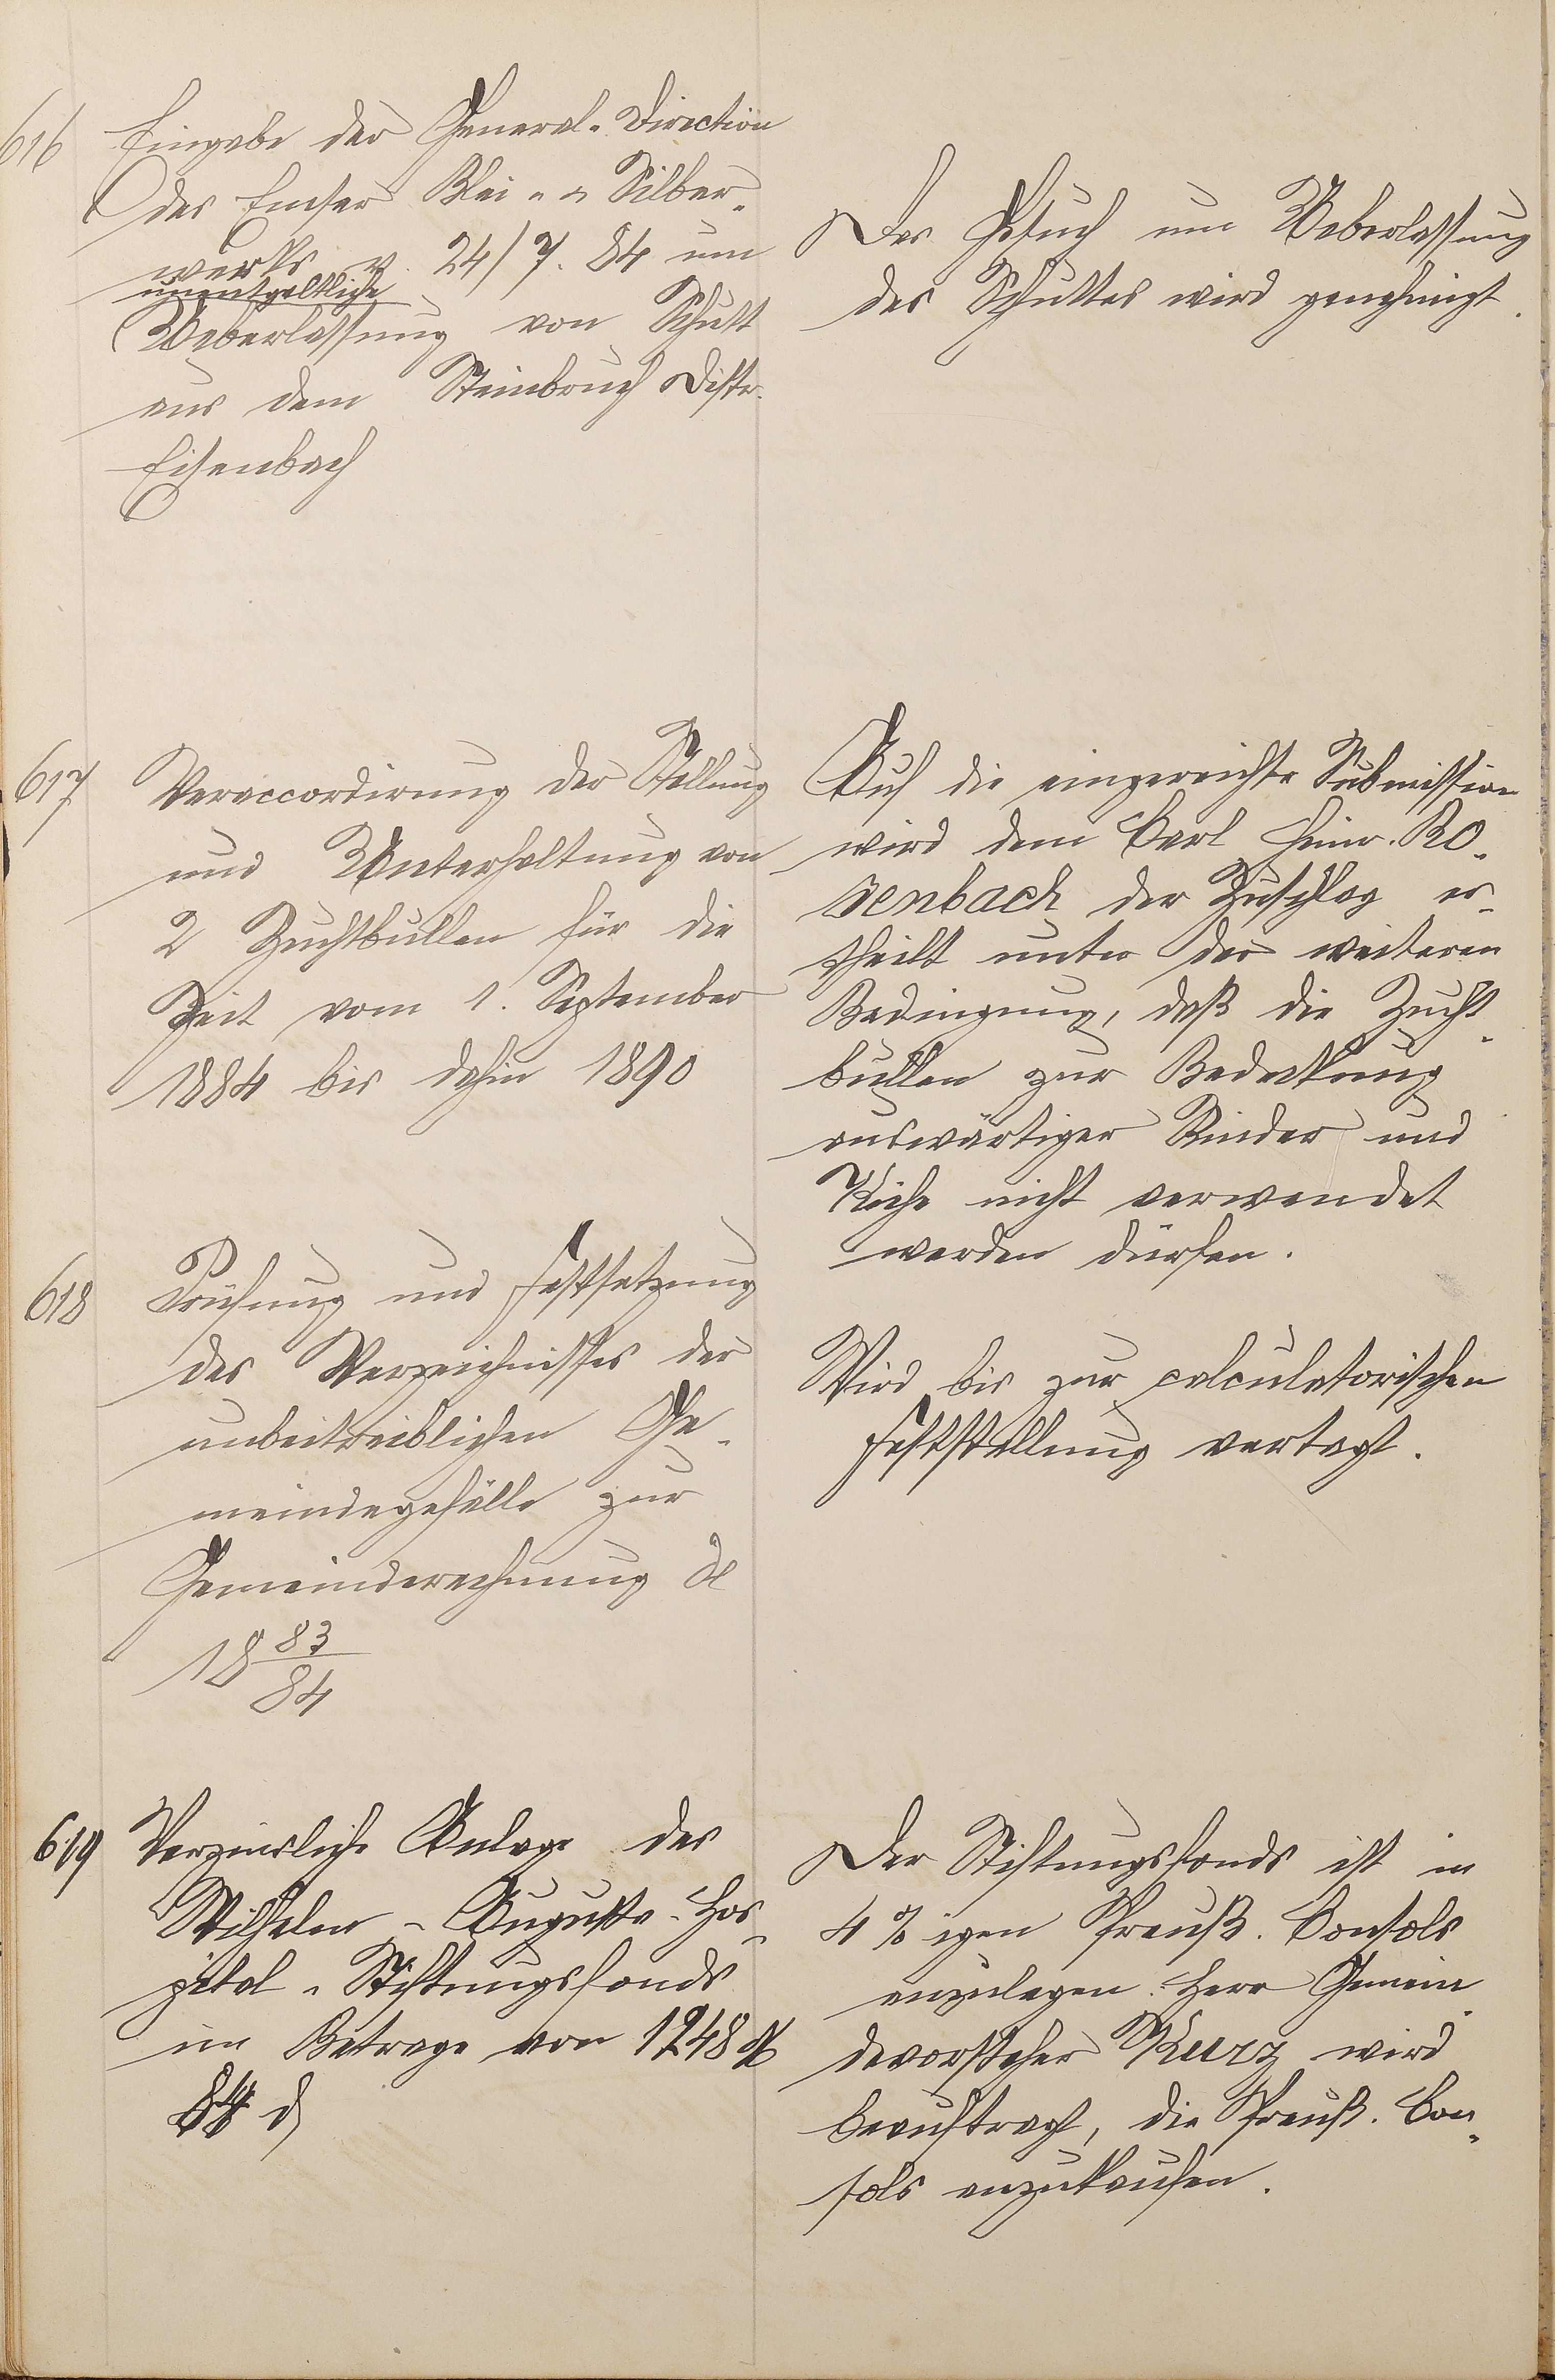 616
Eingabe der General-Direction
des Emser Blei- u Silber-
werks v. 24/7. 84 um
unentgeltliche
Ueberlassung von Schutt
aus dem Steinbruch Distr.
Eisenbach
Das Gesuch um Ueberlassung
des Schuttes wird genehmigt.
617
Veraccordirung der Stellung
und Unterhaltung von
2 Zuchtbullen für die
Zeit vom 1. September
1884 bis dahin 1890
Auf die eingereichte Submission
wird dem Carl Heinr. Ro-
senbach der Zuschlag er-
theilt unter der weiteren
Bedingung, daß die Zucht-
bullen zur Bedeckung
auswärtiger Rinder und
Kühe nicht verwendet
werden dürfen.
618
Prüfung und Festsetzung
des Verzeichnisses der
unbeitreiblichen Ge-
meindegefälle zur
Gemeinderechnung de
18 83/84
Wird bis zur calculatorischen
Feststellung vertagt.
619
Verzinsliche Anlage des
Wilhelm-Augusta-Hos-
pital-Stiftungsfonds
im Betrage von 1248 M
d
Der Stiftungsfonds ist in
4 % igen Preuß. Consols
anzulegen. Herr Gemein-
devorsteher Kurz wird
beauftragt, die Preuß. Con-
sols anzukaufen.